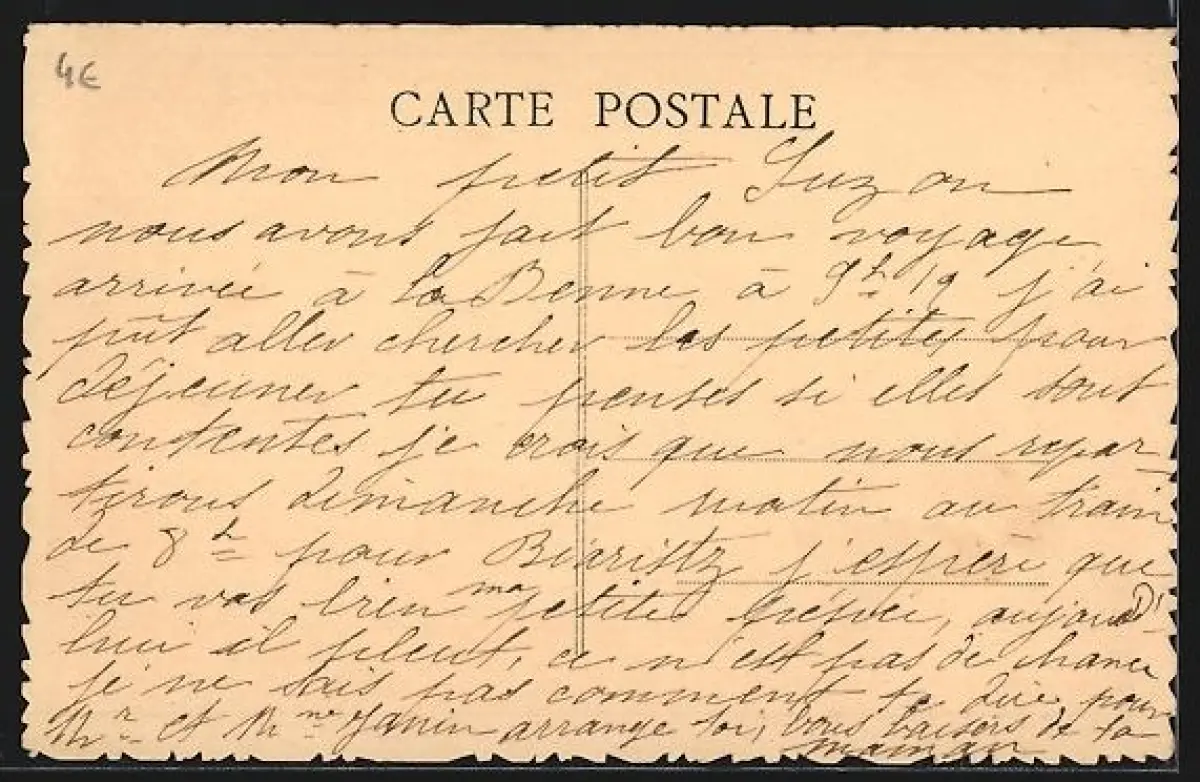 4€
CARTE POSTALE
Mon petit Suzon
nous avons fait bon voyage
arrivée à la Benne à 9h 19 j'ai
pût aller chercher les petites pour
déjeuner tu penses si elles sont
contentes je crois que nous repar-
tirons dimanche matin au train
de 8h pour Biaristz j'espère que
tu vas bien ma petite, aujourd'
hui il pleut, ce n'est pas de chance
je ne sais pas comment te dire pour
Mr et Mme Janin arrange toi, bons baisers de ta
maman